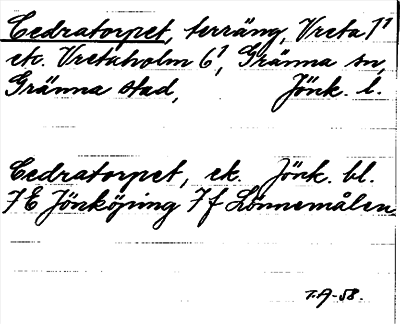 Cedratorpet, terräng, Vreta 1¹
etc. Vretaholm 6¹, Gränna sn,
Gränna stad, Jönk. l.
Cedratorpet, ek. Jönk. bl.
7 E Jönköping 7 f Lönnemålen
T.A-58.